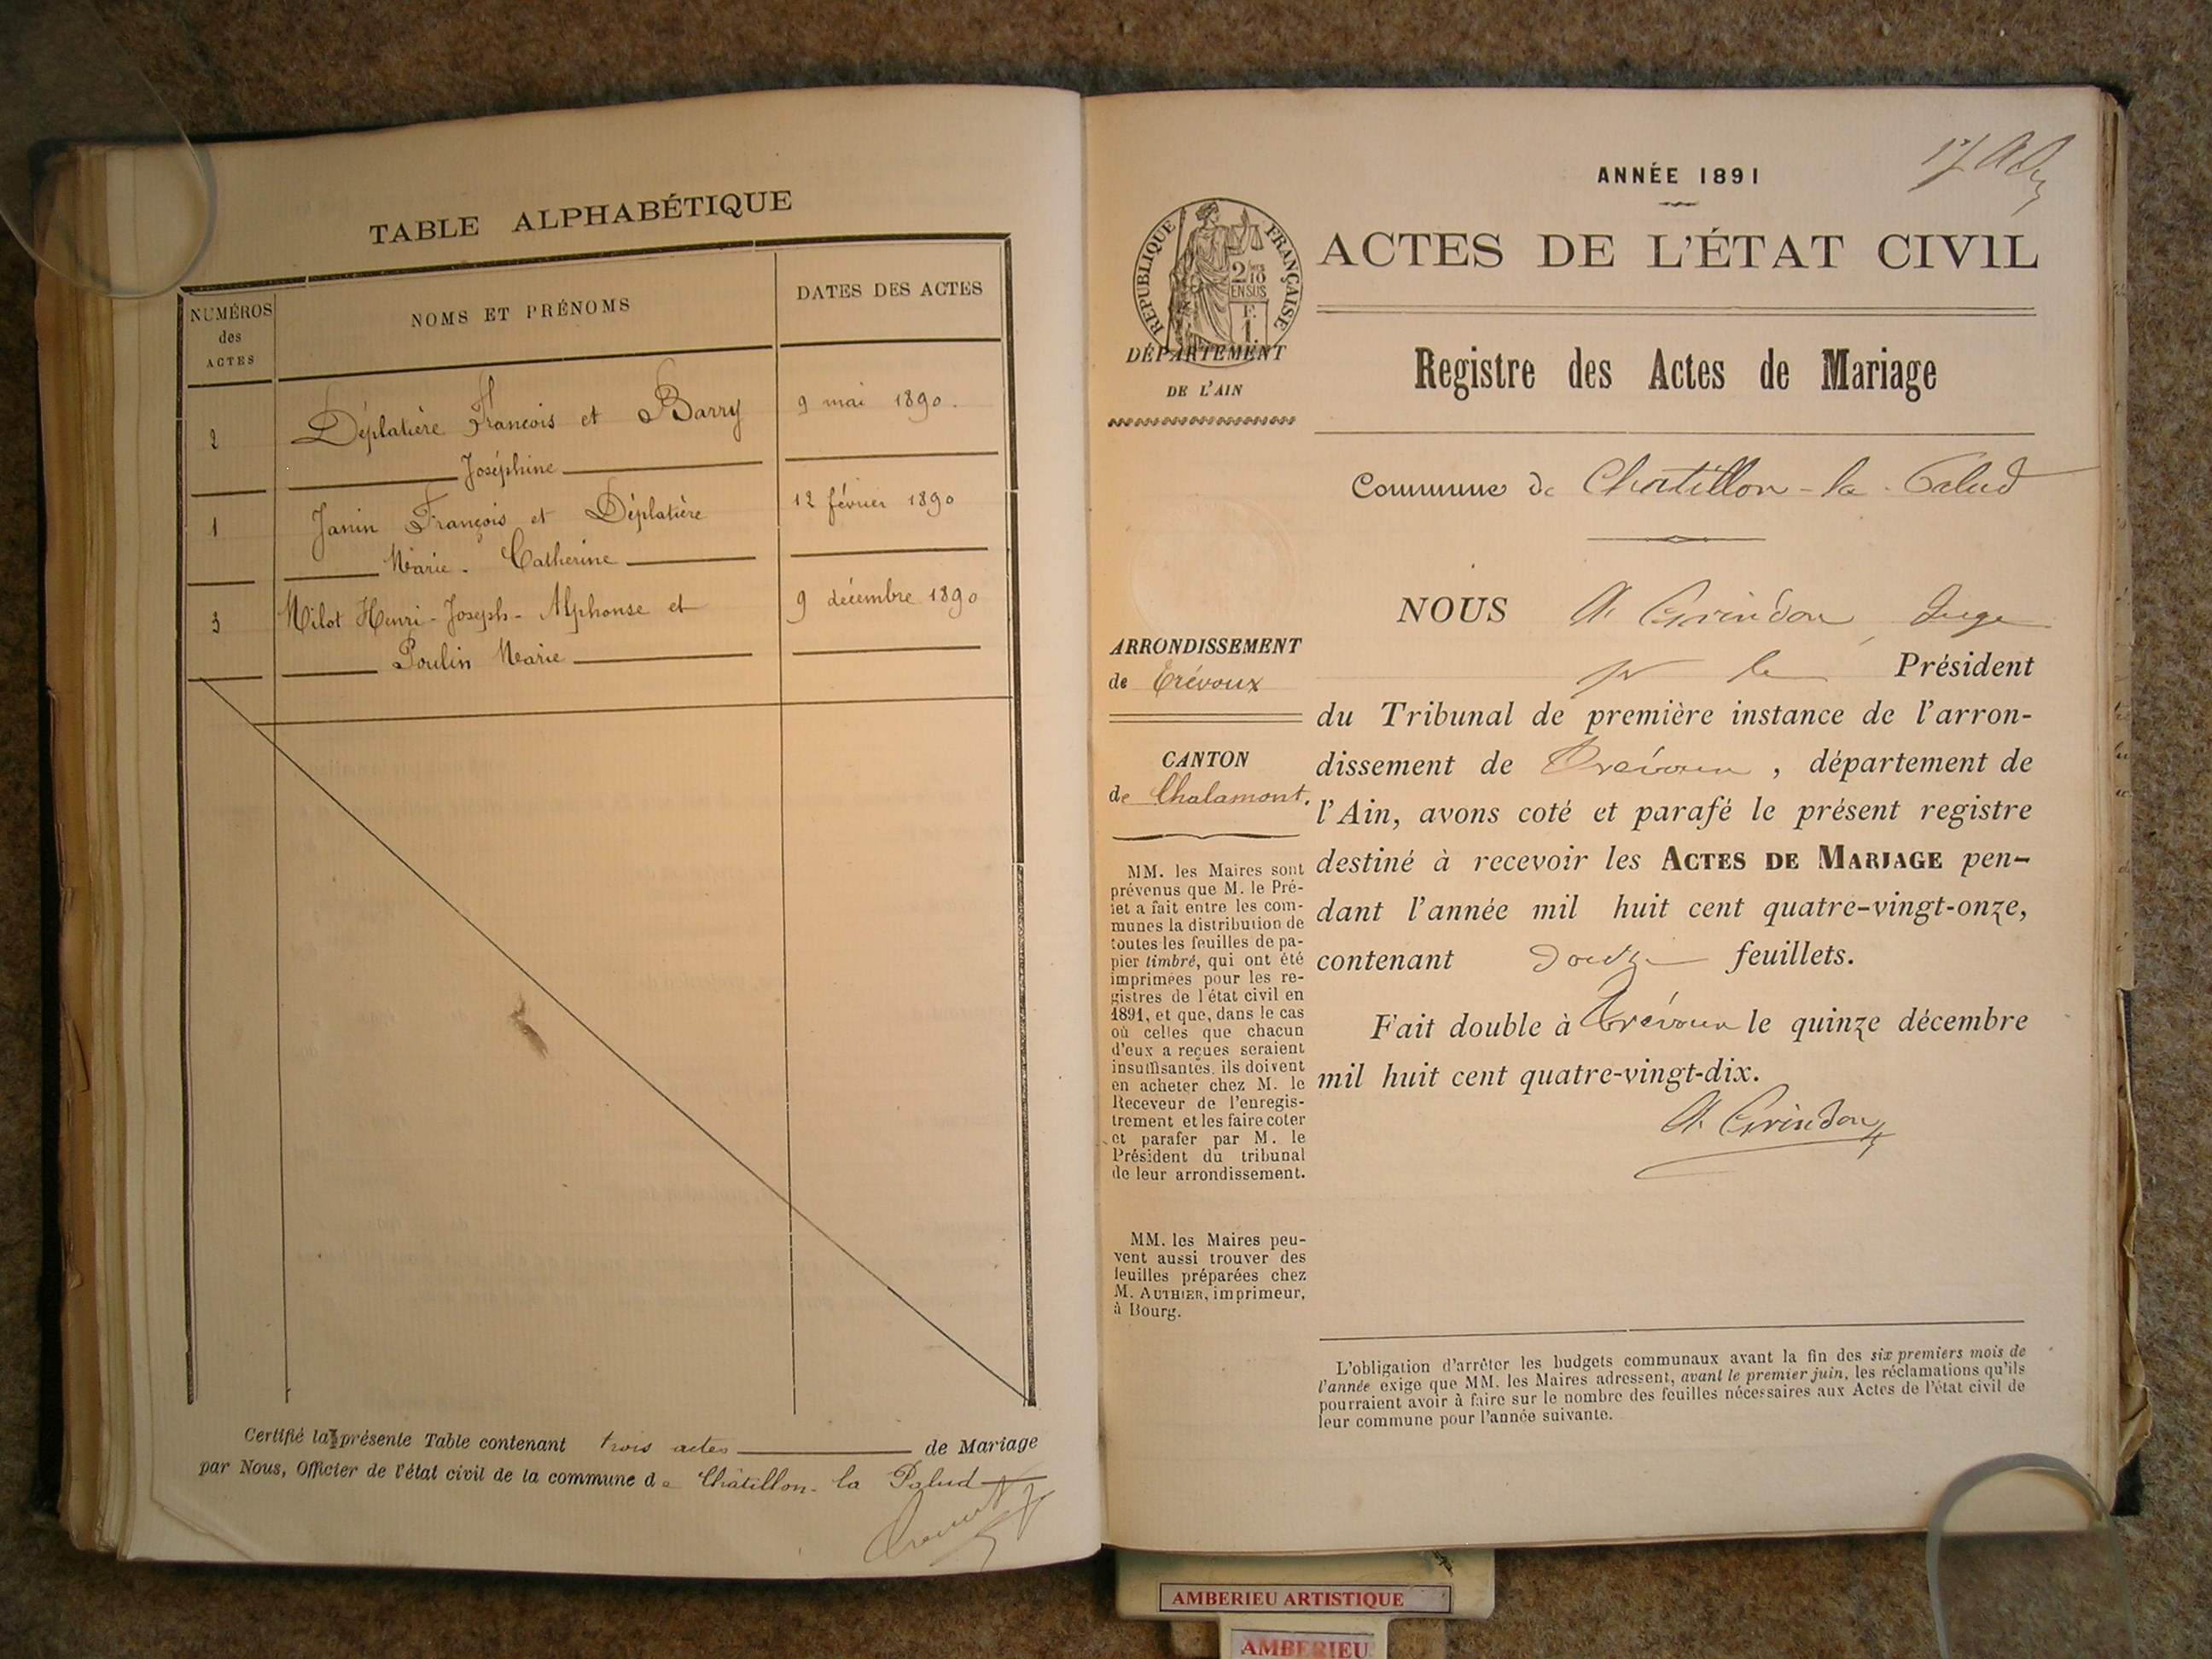 TABLE ALPHABÉTIQUE
NUMÉROS des ACTES
NOMS ET PRÉNOMS
DATES DES ACTES
2 Déplatière François et Barry 9 mai 1890.
Joséphine
1 Janin François et Déplatière 12 février 1890
Marie-Catherine
3 Milot Henri-Joseph-Alphonse et 9 décembre 1890
Poulin Marie
Certifié la présente Table contenant trois actes de Mariage
par Nous, Officier de l'état civil de la commune de Châtillon-la Palud
ANNÉE 1891
ACTES DE L'ÉTAT CIVIL
RÉPUBLIQUE FRANÇAISE
2/10
EN SUS
F.
1.
DÉPARTEMENT
DE L'AIN
Registre des Actes de Mariage
Commune de Chatillon-la-Palud
ARRONDISSEMENT
de Trévoux
CANTON
de Chalamont.
MM. les Maires sont
prévenus que M. le Pré-
fet a fait entre les com-
munes la distribution de
toutes les feuilles de pa-
pier timbré, qui ont été
imprimées pour les re-
gistres de l'état civil en
1891, et que, dans le cas
où celles que chacun
d'eux a reçues seraient
insuffisantes, ils doivent
en acheter chez M. le
Receveur de l'enregis-
trement et les faire coter
et parafer par M. le
Président du tribunal
de leur arrondissement.
MM. les Maires peu-
vent aussi trouver des
feuilles préparées chez
M. AUTHIER, imprimeur,
à Bourg.
NOUS A. Grindon, Juge
pr le Président
du Tribunal de première instance de l'arron-
dissement de Trévoux, département de
l'Ain, avons coté et parafé le présent registre
destiné à recevoir les ACTES DE MARIAGE pen-
dant l'année mil huit cent quatre-vingt-onze,
contenant douze feuillets.
Fait double à Trévoux le quinze décembre
mil huit cent quatre-vingt-dix.
A. Grindon
L'obligation d'arrêter les budgets communaux avant la fin des six premiers mois de
l'année exige que MM. les Maires adressent, avant le premier juin, les réclamations qu'ils
pourraient avoir à faire sur le nombre des feuilles nécessaires aux Actes de l'état civil de
leur commune pour l'année suivante.
AMBERIEU ARTISTIQUE
AMBERIEU